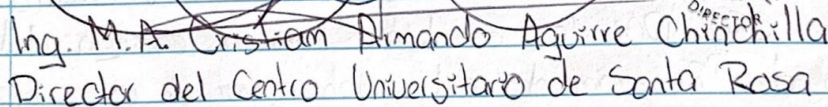 Ing. M.A. Cristian Armando Aguirre Chinchilla
DIRECTOR
Director del Centro Universitario de Santa Rosa